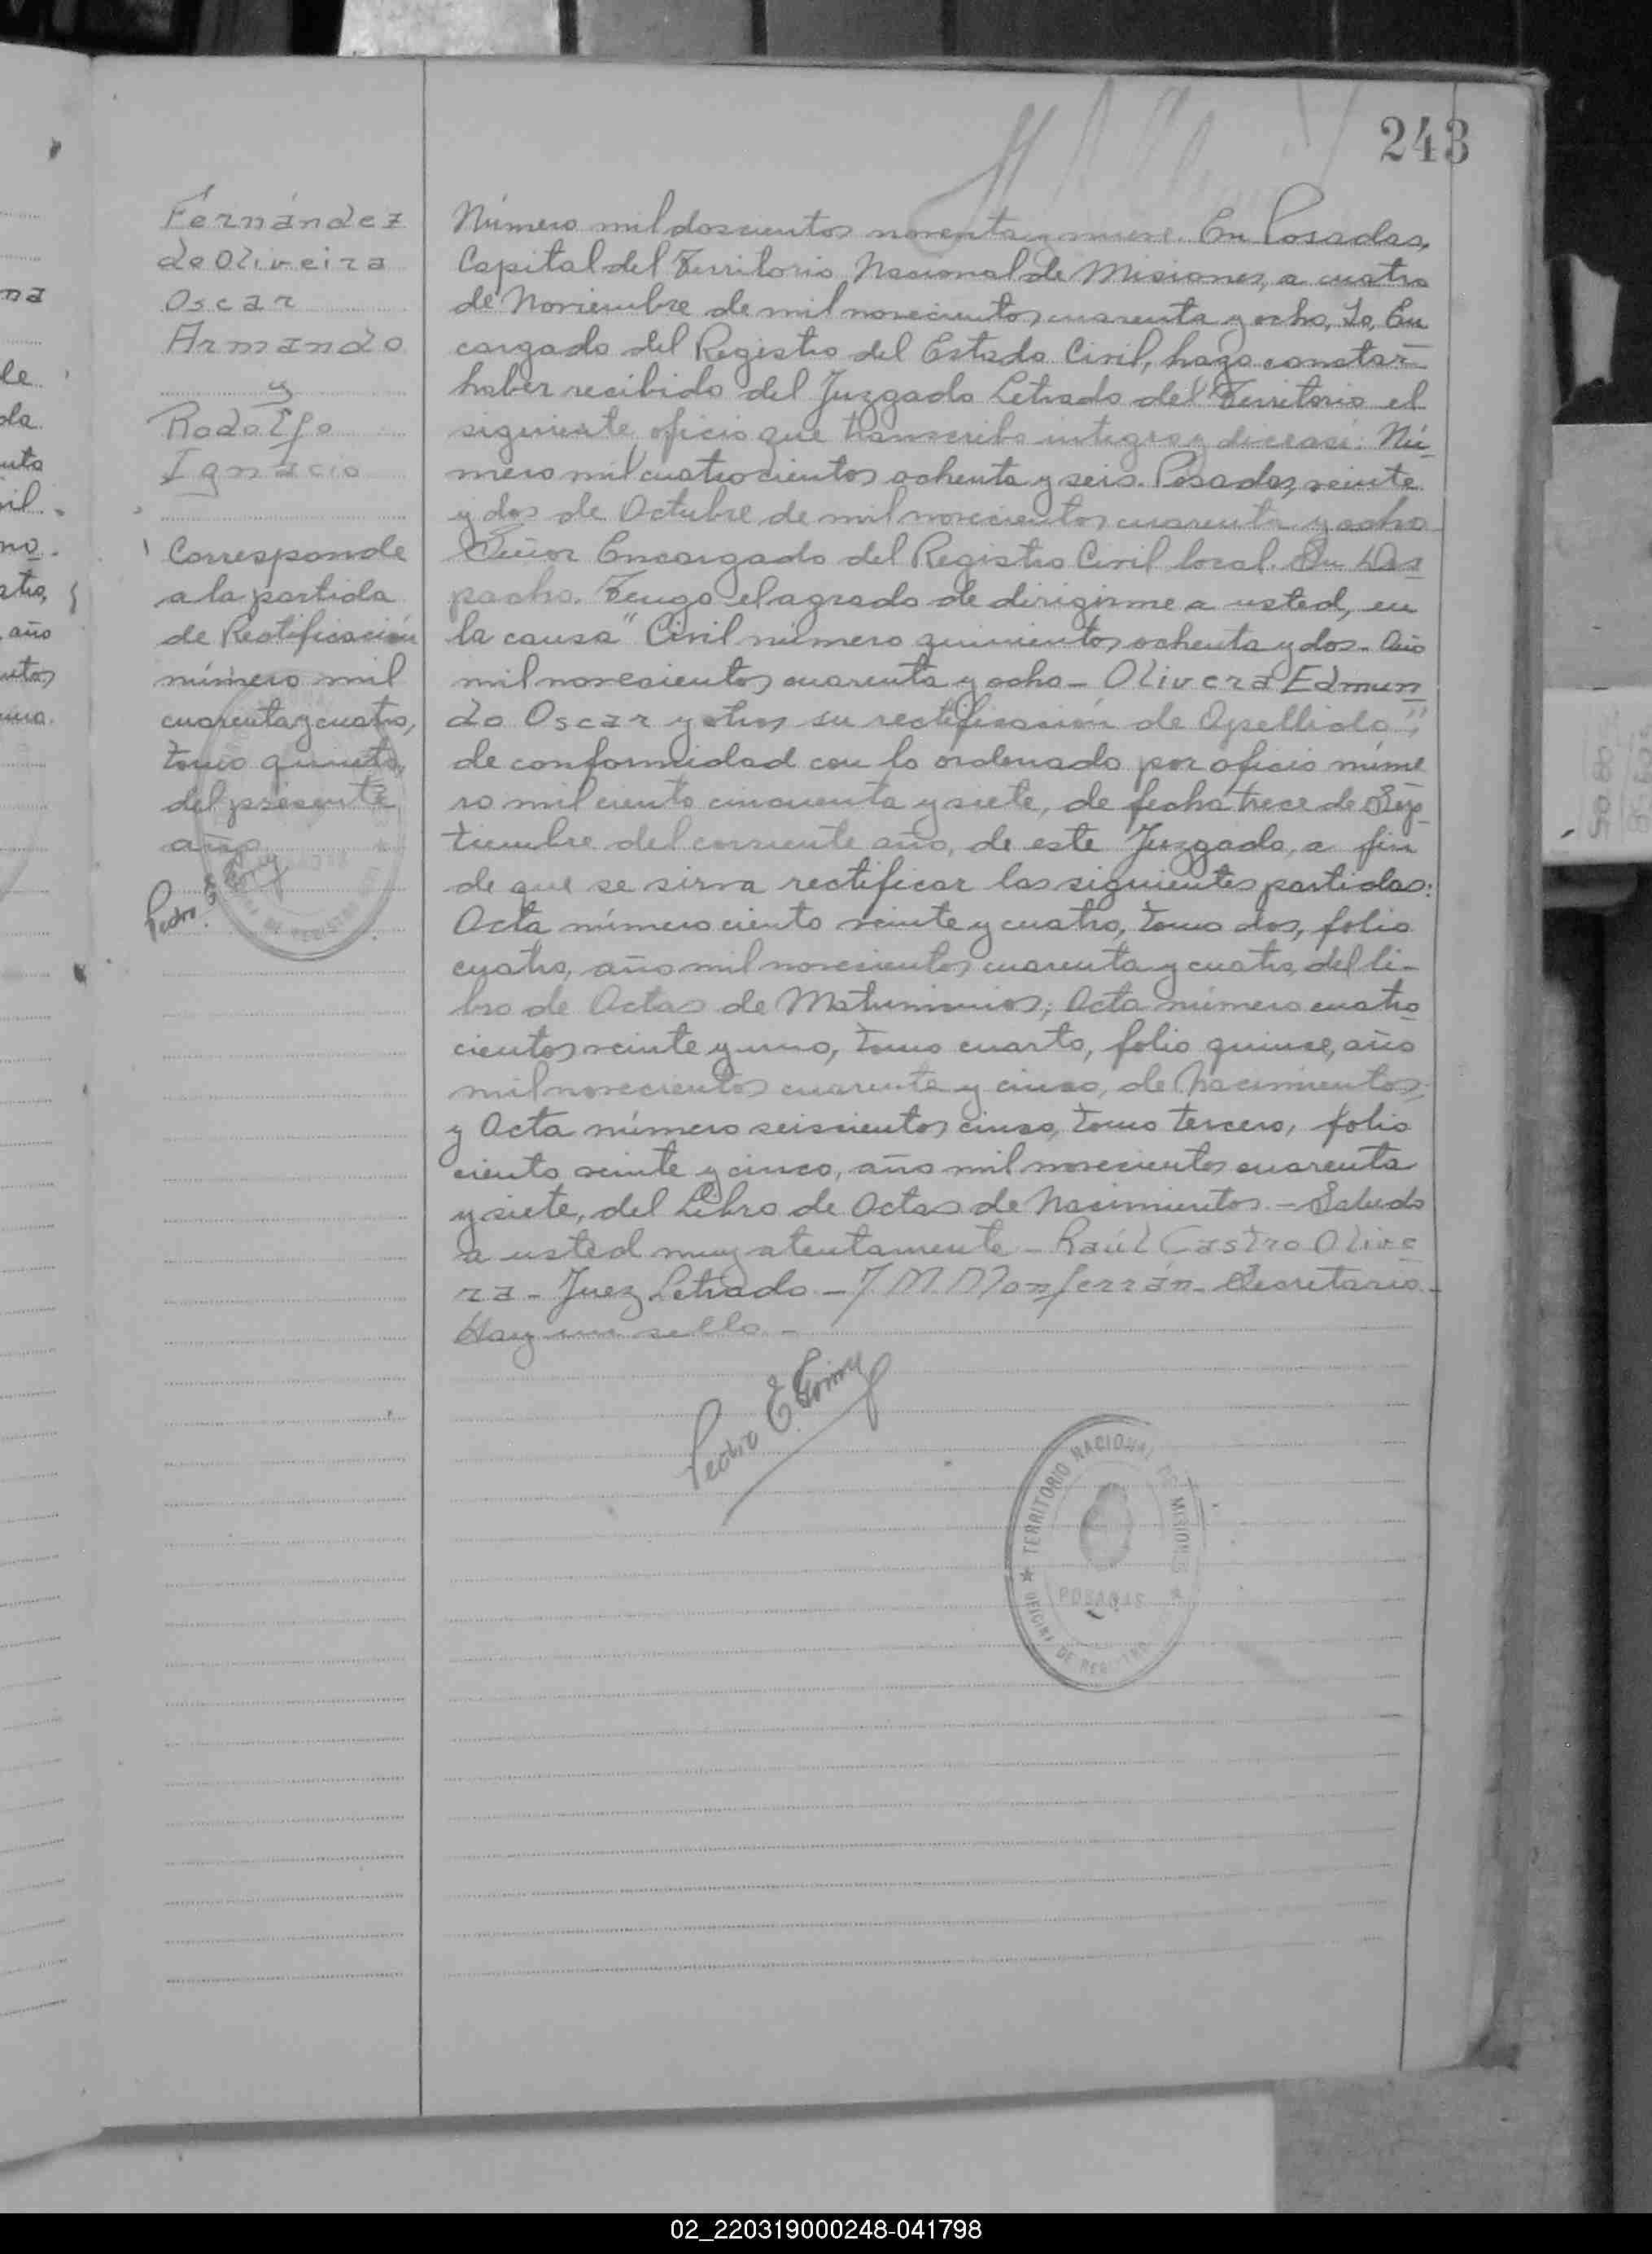 243
Fernández
de Oliveira
Oscar
Armando
y
Rodolfo
Ignacio
Corresponde
a la partida
de Rectificación
número mil
cuarenta y cuatro,
tomo quinto,
del presente
año
Pedro E.
Número mil doscientos noventa y nueve. En Posadas,
Capital del Territorio Nacional de Misiones, a cuatro
de Noviembre de mil novecientos cuarenta y ocho, Yo, En
cargado del Registro del Estado Civil, hago constar
haber recibido del Juzgado Letrado del Territorio el
siguiente oficio que transcribo integro y dice así: Nú-
mero mil cuatrocientos ochenta y seis. Posadas, veinte
y dos de Octubre de mil novecientos cuarenta y ocho
Señor Encargado del Registro Civil local. Su Des-
pacho. Tengo el agrado de dirigirme a usted, en
la causa "Civil número quinientos ochenta y dos - Año
mil novecientos cuarenta y ocho - Olivera Edmun
do Oscar y otros su rectificación de Apellido",
de conformidad con lo ordenado por oficio núme
ro mil ciento cincuenta y siete, de fecha trece de Sep-
tiembre del corriente año, de este Juzgado, a fin
de que se sirva rectificar las siguientes partidas:
Acta número ciento veinte y cuatro, tomo dos, folio
cuatro, año mil novecientos cuarenta y cuatro, del li-
bro de Actas de Matrimonios; Acta número cuatro
cientos veinte y uno, tomo cuarto, folio quince, año
mil novecientos cuarenta y cinco, de Nacimientos,
y Acta número seiscientos cinco, tomo tercero, folio
ciento veinte y cinco, año mil novecientos cuarenta
y siete, del Libro de Actas de Nacimientos. - Saludo
a usted muy atentamente - Raúl Castro Olive
ra - Juez Letrado - J. M. Monferrán - Secretario -
Hay un sello -
Pedro E.
TERRITORIO NACIONAL DE MISIONES
POSADAS
OFICINA DE REGISTRO
02_220319000248-041798